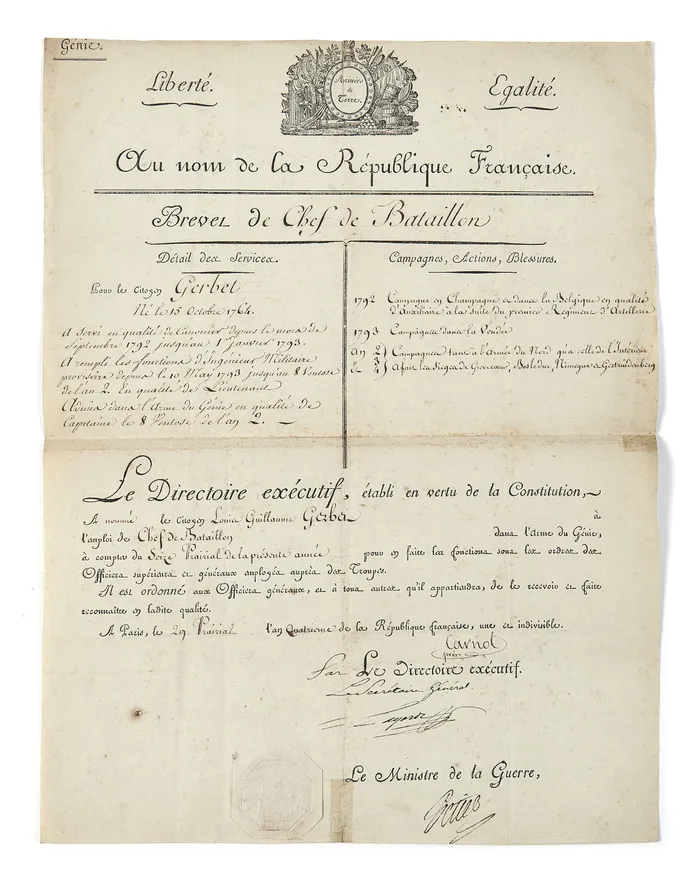 Génie.
Liberté.
Armées
de
Terre.
Egalité.
Au nom de la République Française.
Brevet de Chef de Bataillon
Détail des Services.
Pour le citoyen Gerbet
Né le 15 Octobre 1764.
A servi en qualité de Canonier depuis le mois de
Septembre 1792 jusqu'au 1er janvier 1793.
A rempli les fonctions d'Ingénieur Militaire
provisoire depuis le 10 May 1793 jusqu'au 8 Ventose
de l'an 2. En qualité de Lieutenant
Admis dans l'Arme du Génie en qualité de
Capitaine le 8 Ventose de l'an 2.
Campagnes, Actions, Blessures.
1792 Campagne en Champagne et dans la Belgique en qualité
d'Auxiliaire à la suite du premier Régiment d'Artillerie
1793 Campagne dans la Vendée
An 2 Campagnes tant à l'Armée du Nord qu'à celle de l'Intérieur
& 3 A fait les Sièges de Bosleduc, Nimegue et Gertruidenberg
Le Directoire exécutif, établi en vertu de la Constitution,
A nommé le citoyen Louis Guillaume Gerbet à
l'emploi de Chef de Bataillon dans l'Arme du Génie,
à compter du Seize Prairial de la présente année pour en faire les fonctions sous les ordres des
Officiers supérieurs et généraux employés auprès des Troupes.
Il est ordonné aux Officiers généraux, et à tous autres qu'il appartiendra, de le recevoir et faire
reconnaître en ladite qualité.
A Paris, le 29 Prairial l'an Quatrieme de la République française, une et indivisible.
Carnot
Par Le Directoire exécutif.
Le Secrétaire Général
Le Ministre de la Guerre,